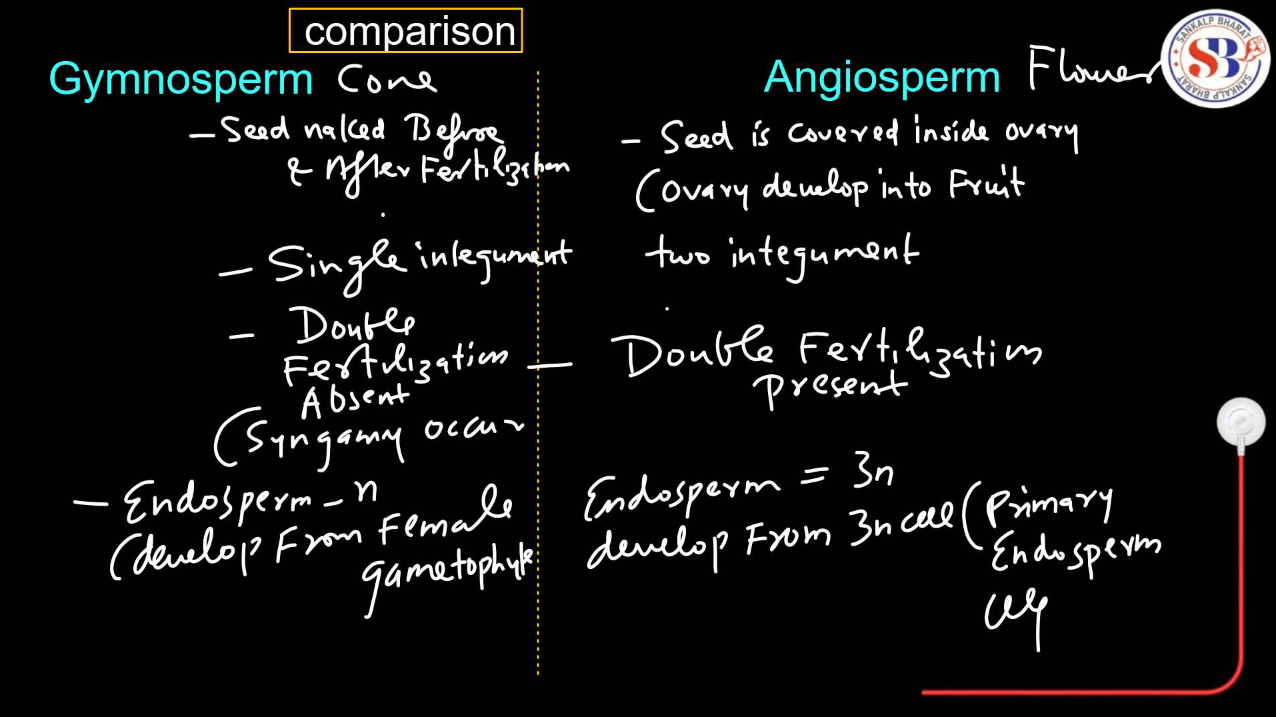 comparison
Gymnosperm Cone
- Seed naked Before
& After Fertilization
- Single integument
- Double
Fertilization
Absent
(Syngamy occur
- Endosperm - n
(develop From Female
gametophyte
Angiosperm Flower
- Seed is covered inside ovary
(Ovary develop into Fruit
two integument
- Double Fertilization
present
Endosperm = 3n
develop From 3n cell (Primary
Endosperm
SANKALP BHARAT
SB
SANKALP BHARAT